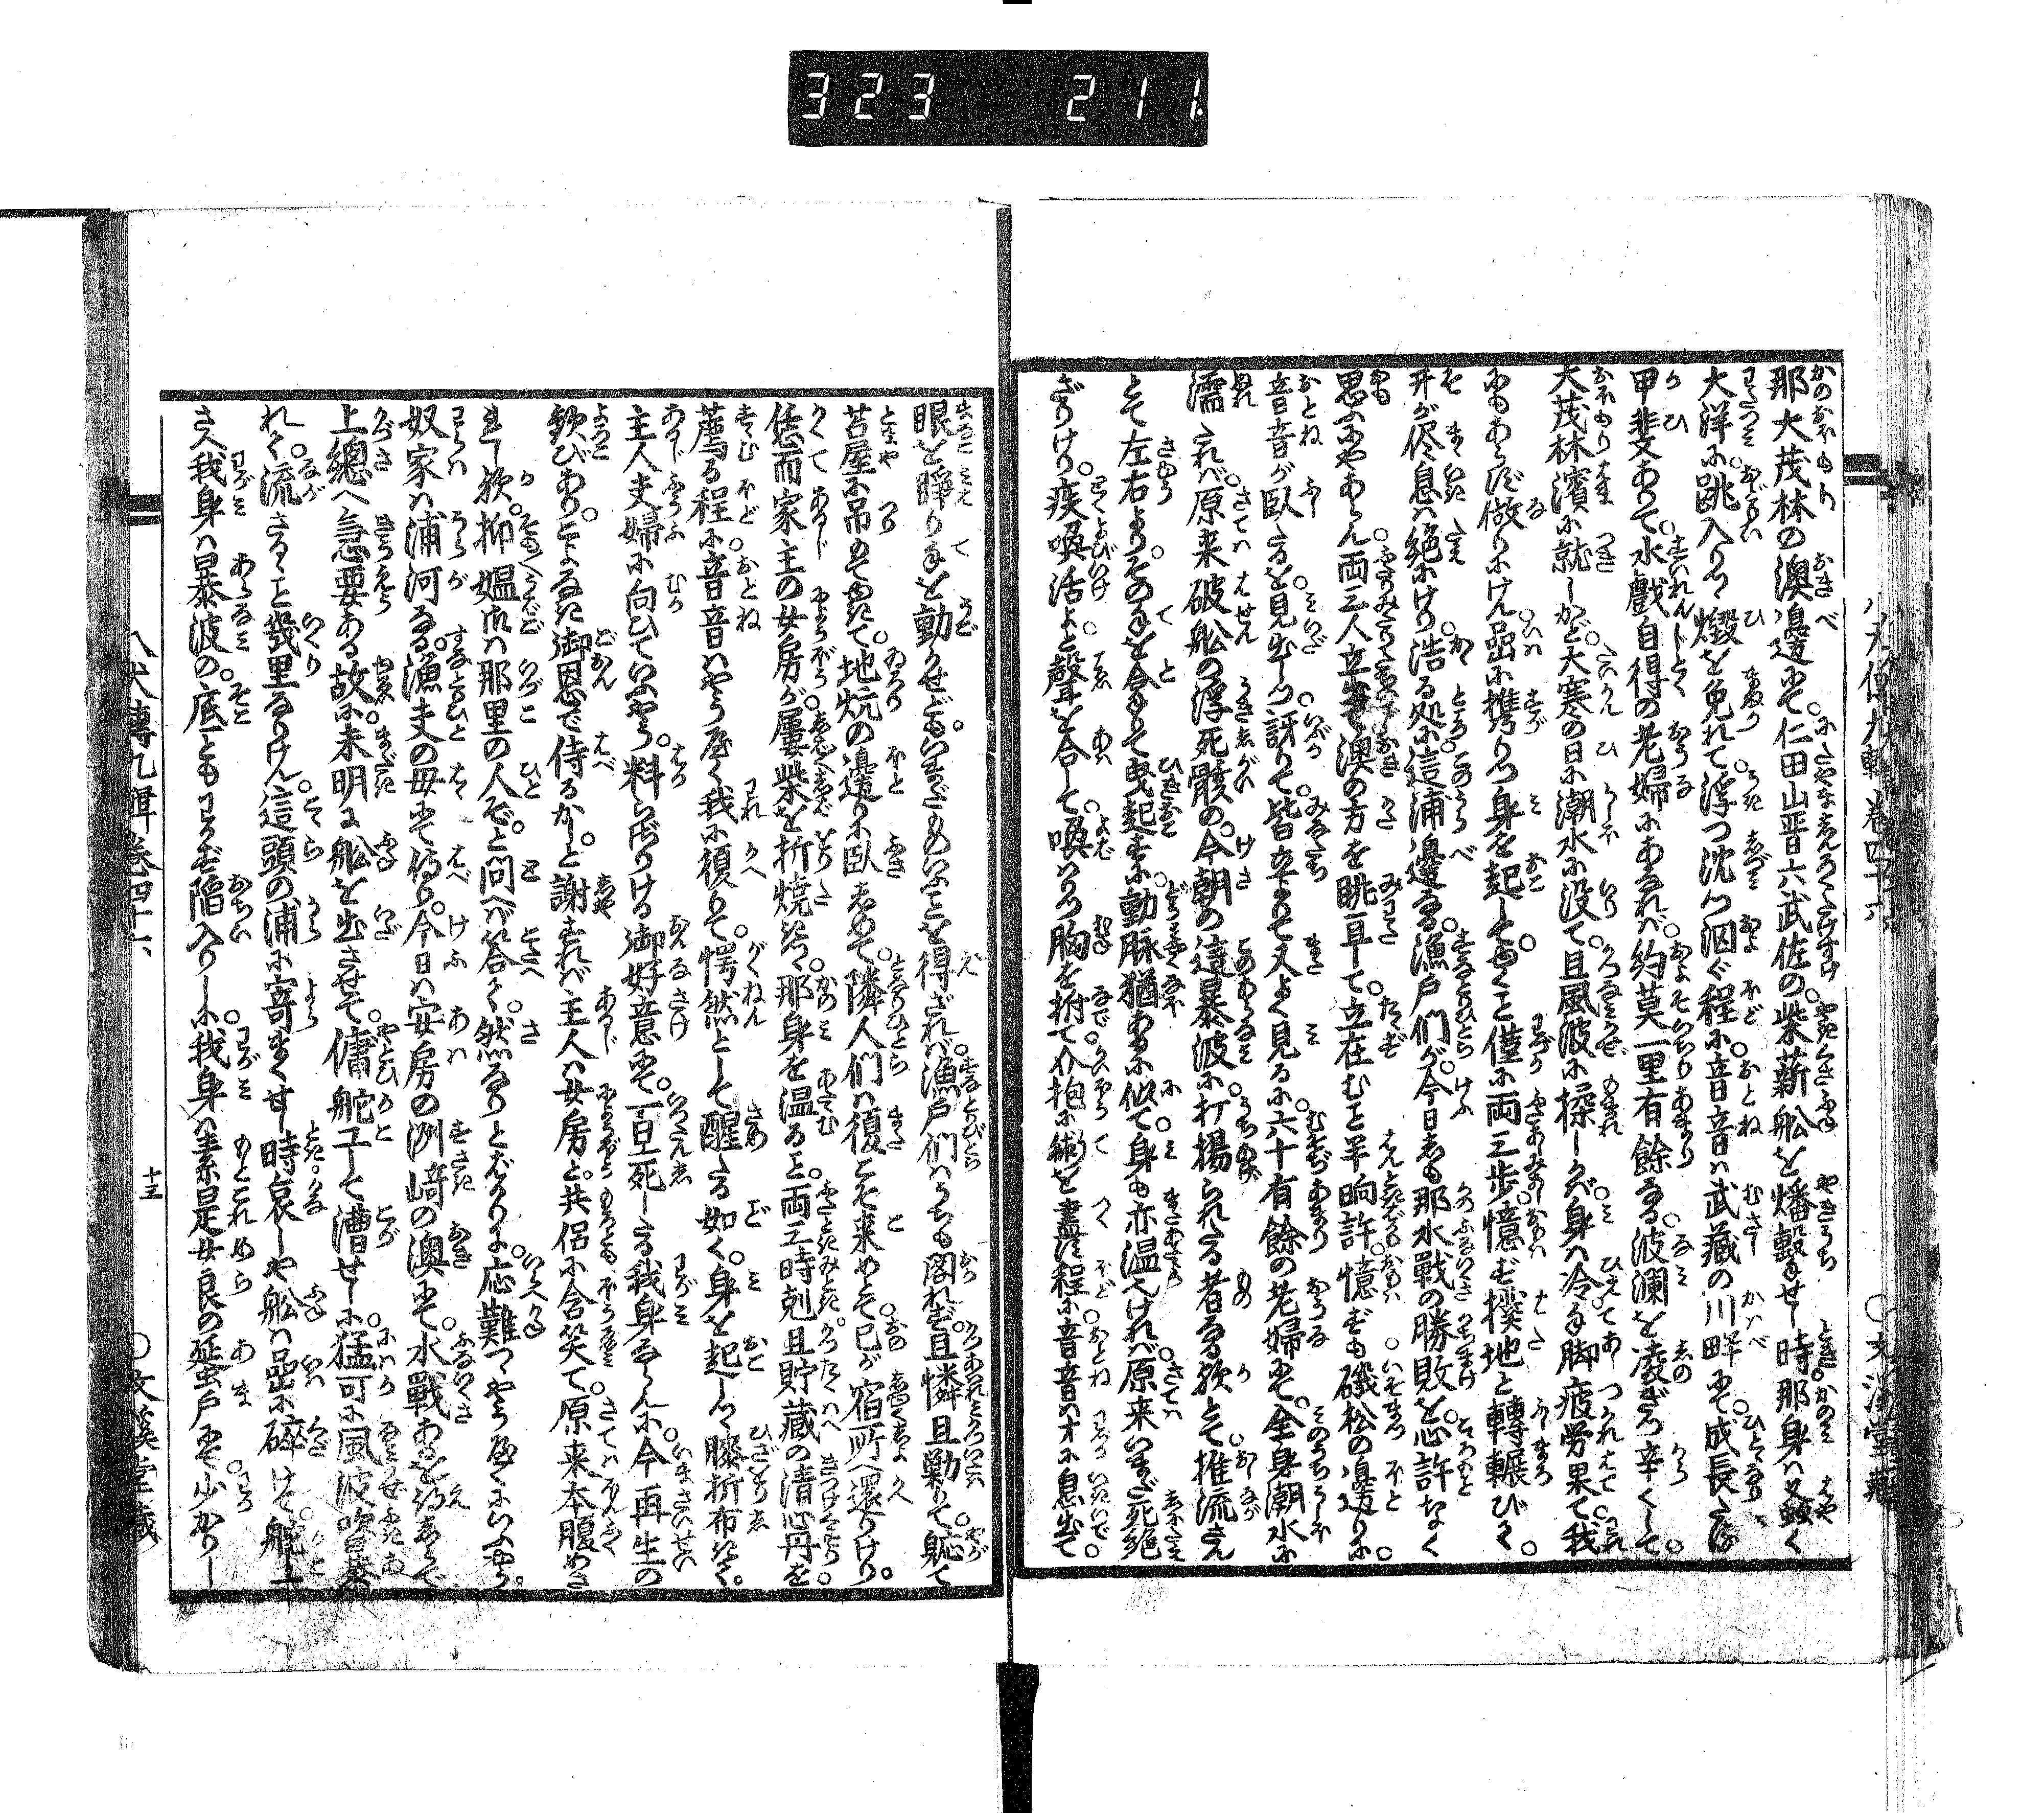 323 211
八犬傳九輯卷四十六
○文溪堂藏
那大茂林の澳邊にて。仁田山晋六武佐の。柴薪舩を燔轂せし時。那身ハ蚤く
大洋に跳入りつ。燬を免れて。浮つ沈つ泅ぐ程に。音音ハ武藏の川畔にて。成長たる
甲斐ありて。水戲自得の老婦にあなれバ。約莫一里有餘なる。波瀾を凌ぎつ辛くして。
大茂林濱に就しかど。大寒の日に潮水に没て。且風波に操しかバ。身ハ冷て脚疲労果て。我
にもあらず做りにけん。嵒に携りつ身を起して。ゆくと僅に両三歩。憶ず撲地と轉輾びて。
开が侭息ハ絶にけり。浩る処に這浦邊なる。漁戸們が。今日しも那水戰の勝敗を。心許なく
思ふにやあらん。両三人立出て。澳の方を眺望て。立在むこと半晌許。憶ずも磯松の邊りに。
音音が臥たるを。見出しつ。訝りて。皆立よりて又よく見るに。六十有餘の老婦にて。全身潮水に
濡たれバ。原来破舩の浮死骸の。今朝の這暴波に。打揚られたる者なる歟とて。推流さん
とて左右より。その手を合りて曳起すに。動脉猶あるに似て。身も亦温へければ。原来いまだ死絶
ざりけり。疾喚活よと聲を合して。喚つゝ胸を拊て。介抱に術を盡す程に。音音ハオに息出て。
眼を睜り手を動せども。いまだものいふことを得ざれバ。漁戸們ハうちも閣れず。且憐且勦りて。軈て
苫屋に吊もてゆきて。地炕の邊りに臥しめて。隣人們ハ復こそ来めとて。己が宿所へ還りけり。
恁而家主の女房が。屢柴を折焼べて。那身を温ること。両三時剋。且貯藏の清心丹を
薦る程に。音音ハやうやく我に復りて。愕然として醒たる如く。身を起しつゝ膝折布て。
主人夫婦に向ひていふやう。料らざりける御好意にて。一旦死したる我身ならんに。今再生の
歓びあり。こよなき御恩で侍るかし。と謝すれバ。主人ハ女房と。共侶に含笑て。原来本腹めさ
れし歟。抑媼御ハ那里の人ぞ。と問へバ答て。然なりとばかりに。応難つゝやうやくにいふやう。
奴家ハ浦河なる。漁夫の母にて侍り。今日ハ安房の洲﨑の澳にて。水戰あるを得しらで。
上總へ急要ある故に。未明に舩を出させて。傭舵子して漕せしに。猛可に風波吹暴
れて。流さるゝこと幾里なりけん。這頭の浦に寄まくせし時。哀しや舩ハ嵒に碎けて。舵工
さへ我身ハ暴波の。底ともわかず陥入りしに。我身ハ素是女良の蜑戸にて。少かりし
八犬傳九輯卷四十六
十三
○文溪堂藏